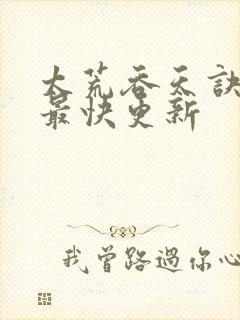 大荒吞天訣
最快更新
我曾路過你心